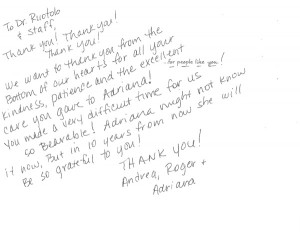 To Dr. Ruotolo
& staff,
Thank you! Thank you!
Thank you!
We want to thank you from the
Bottom of our hearts for all your
kindness, patience and the excellent
care you gave to Adriana!
for people like you!
You made a very difficult time for us
so Bearable! Adriana might not know
it now, But in 10 years from now she will
Be so grateful to you!
THANK you!
Andrea, Roger +
Adriana